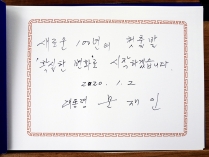 새로운 100년의 첫 출발
'확실한 변화'로 시작하겠습니다.
2020. 1. 2
대통령 문재인